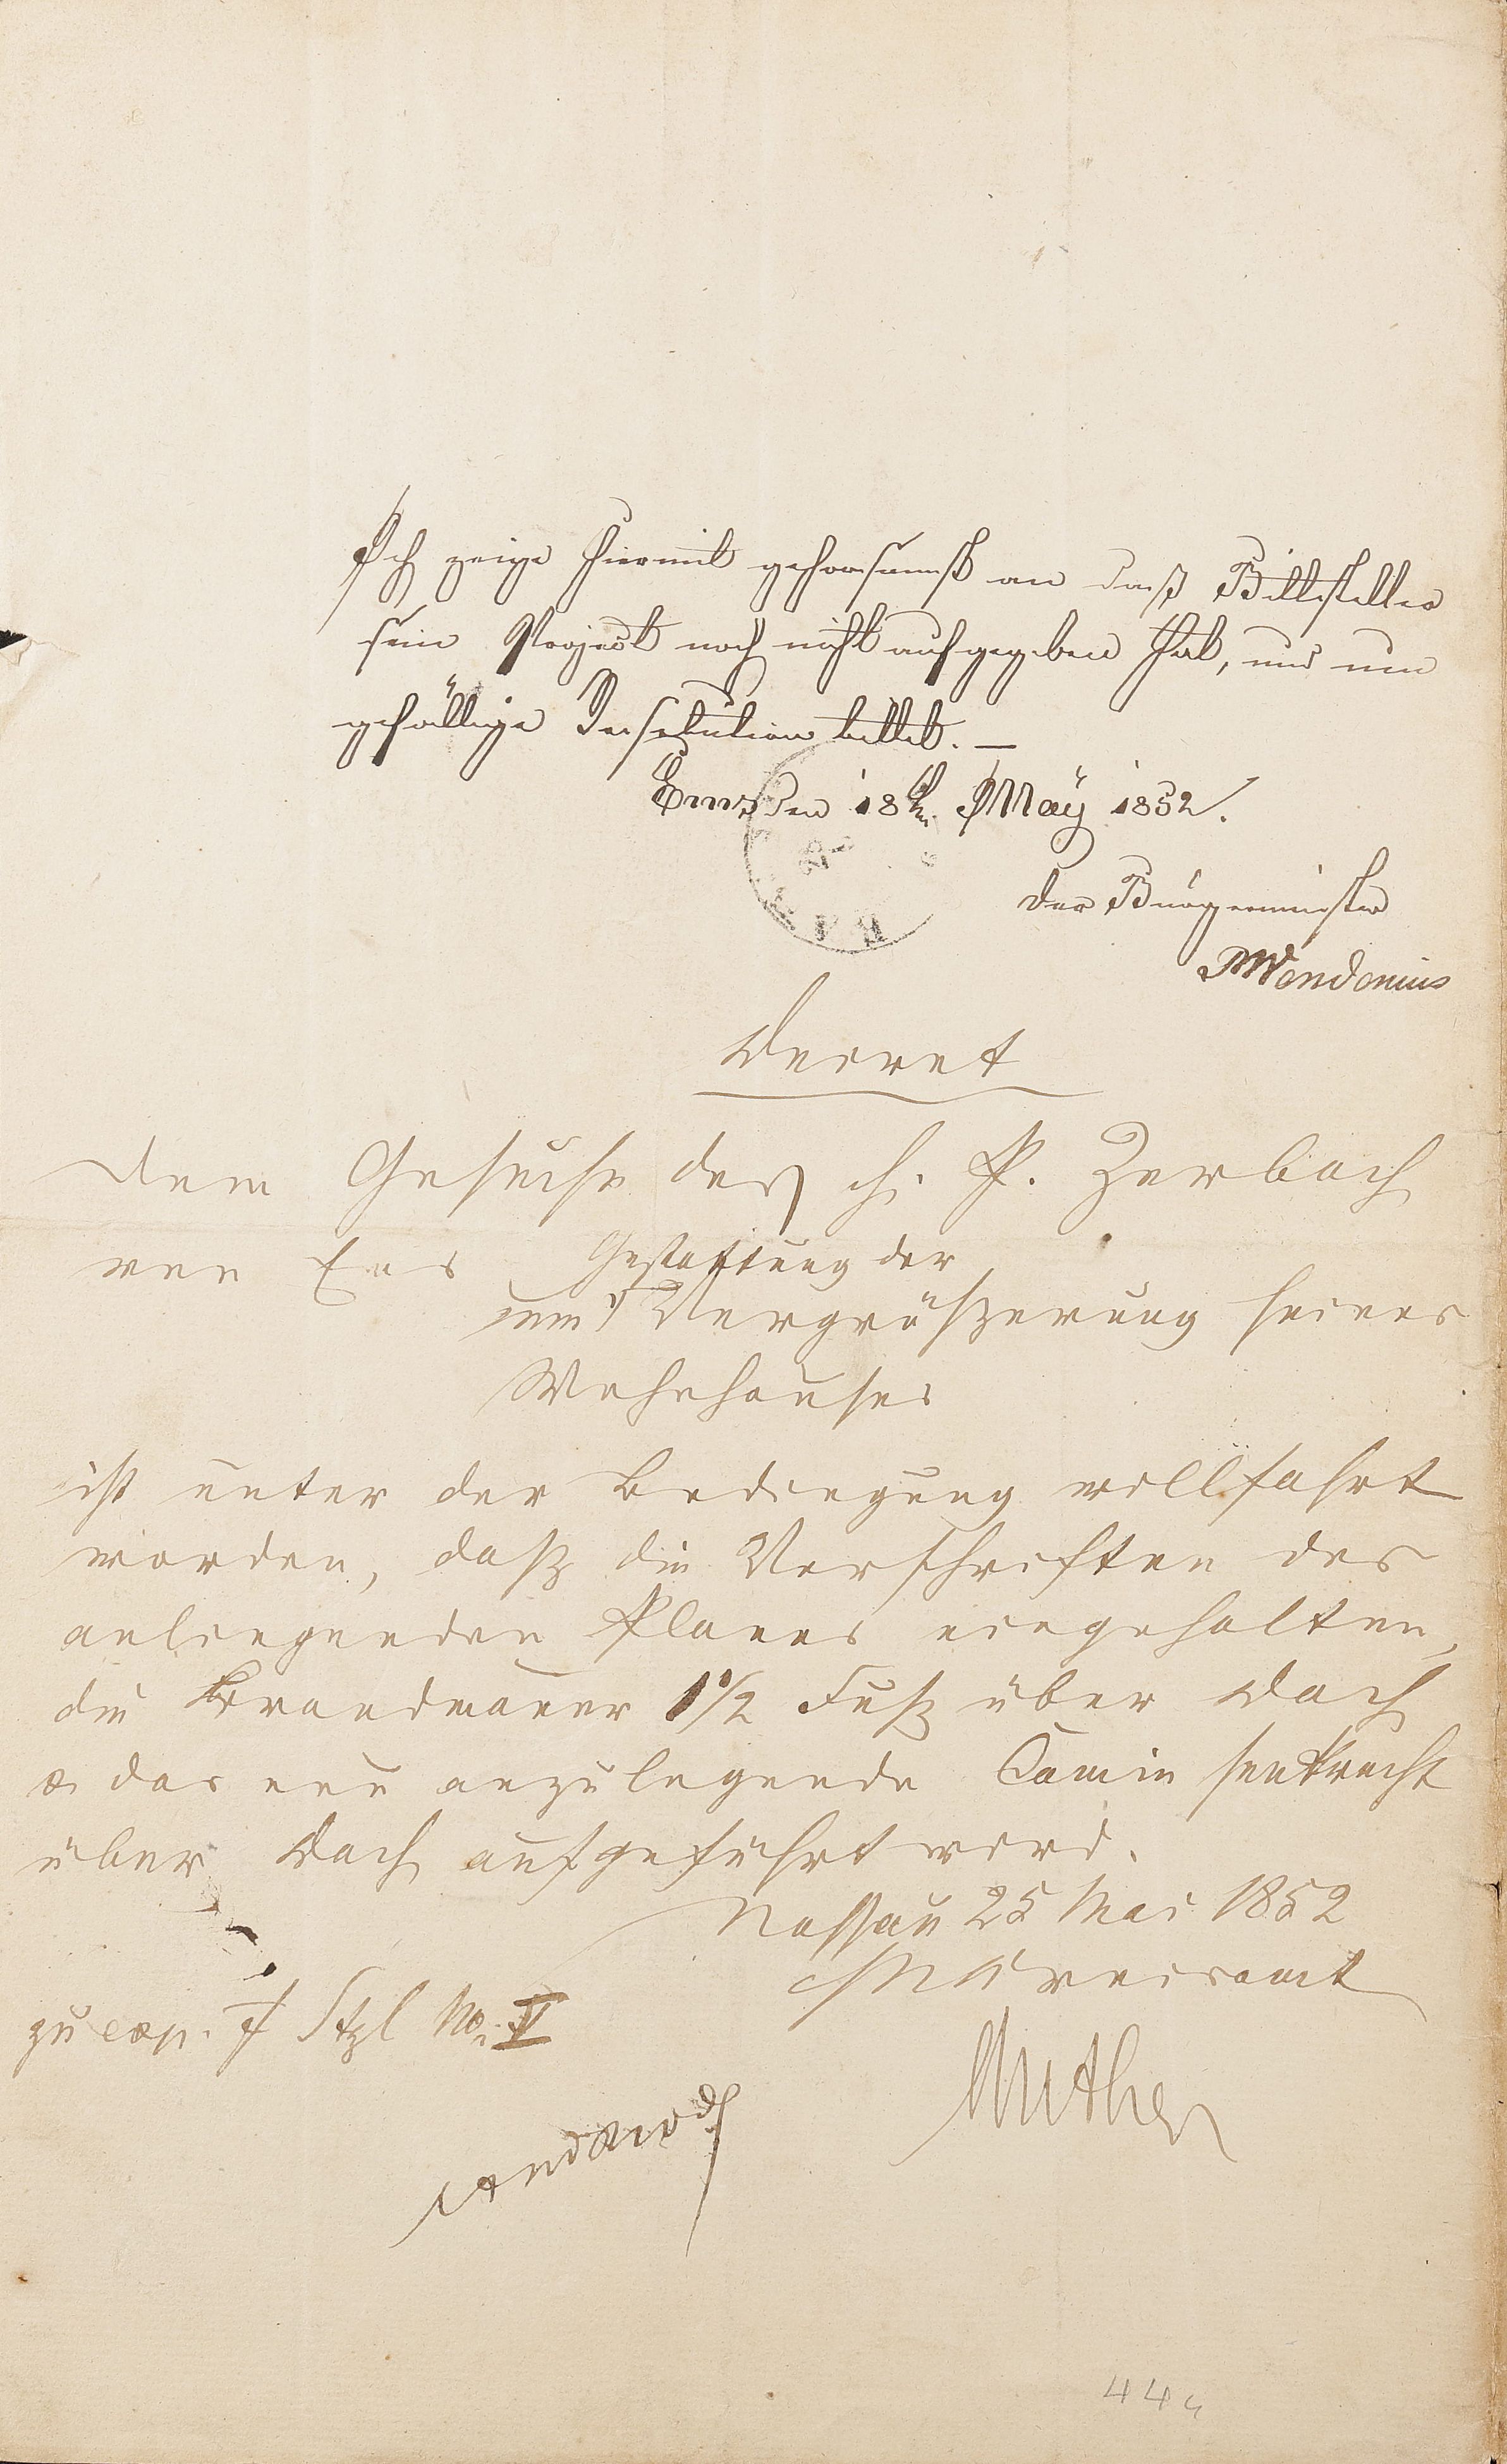 Ich zeige hiermit gehorsamst an daß Bittsteller
sein Project noch nicht aufgegeben hat, und um
gefällige Resolution bittet. —
Ems den 18ten May 1852.
Der Bürgermeister
Decret
Dem Gesuche des Ph. P. Zerbach
von Ems
Gestattung der
um Vergrößerung seines
Wohnhauses
ist unter der Bedingung willfahrt
worden, daß die Vorschriften des
anliegenden Planes eingehalten,
die Brandmauer 1 1/2 Fuß über Dach
& das neu anzulegende Camin senkrecht
über Dach aufgeführt wird.
Nassau 25 Mai 1852
Kreisamt
zu exp. Stzl No. V
44